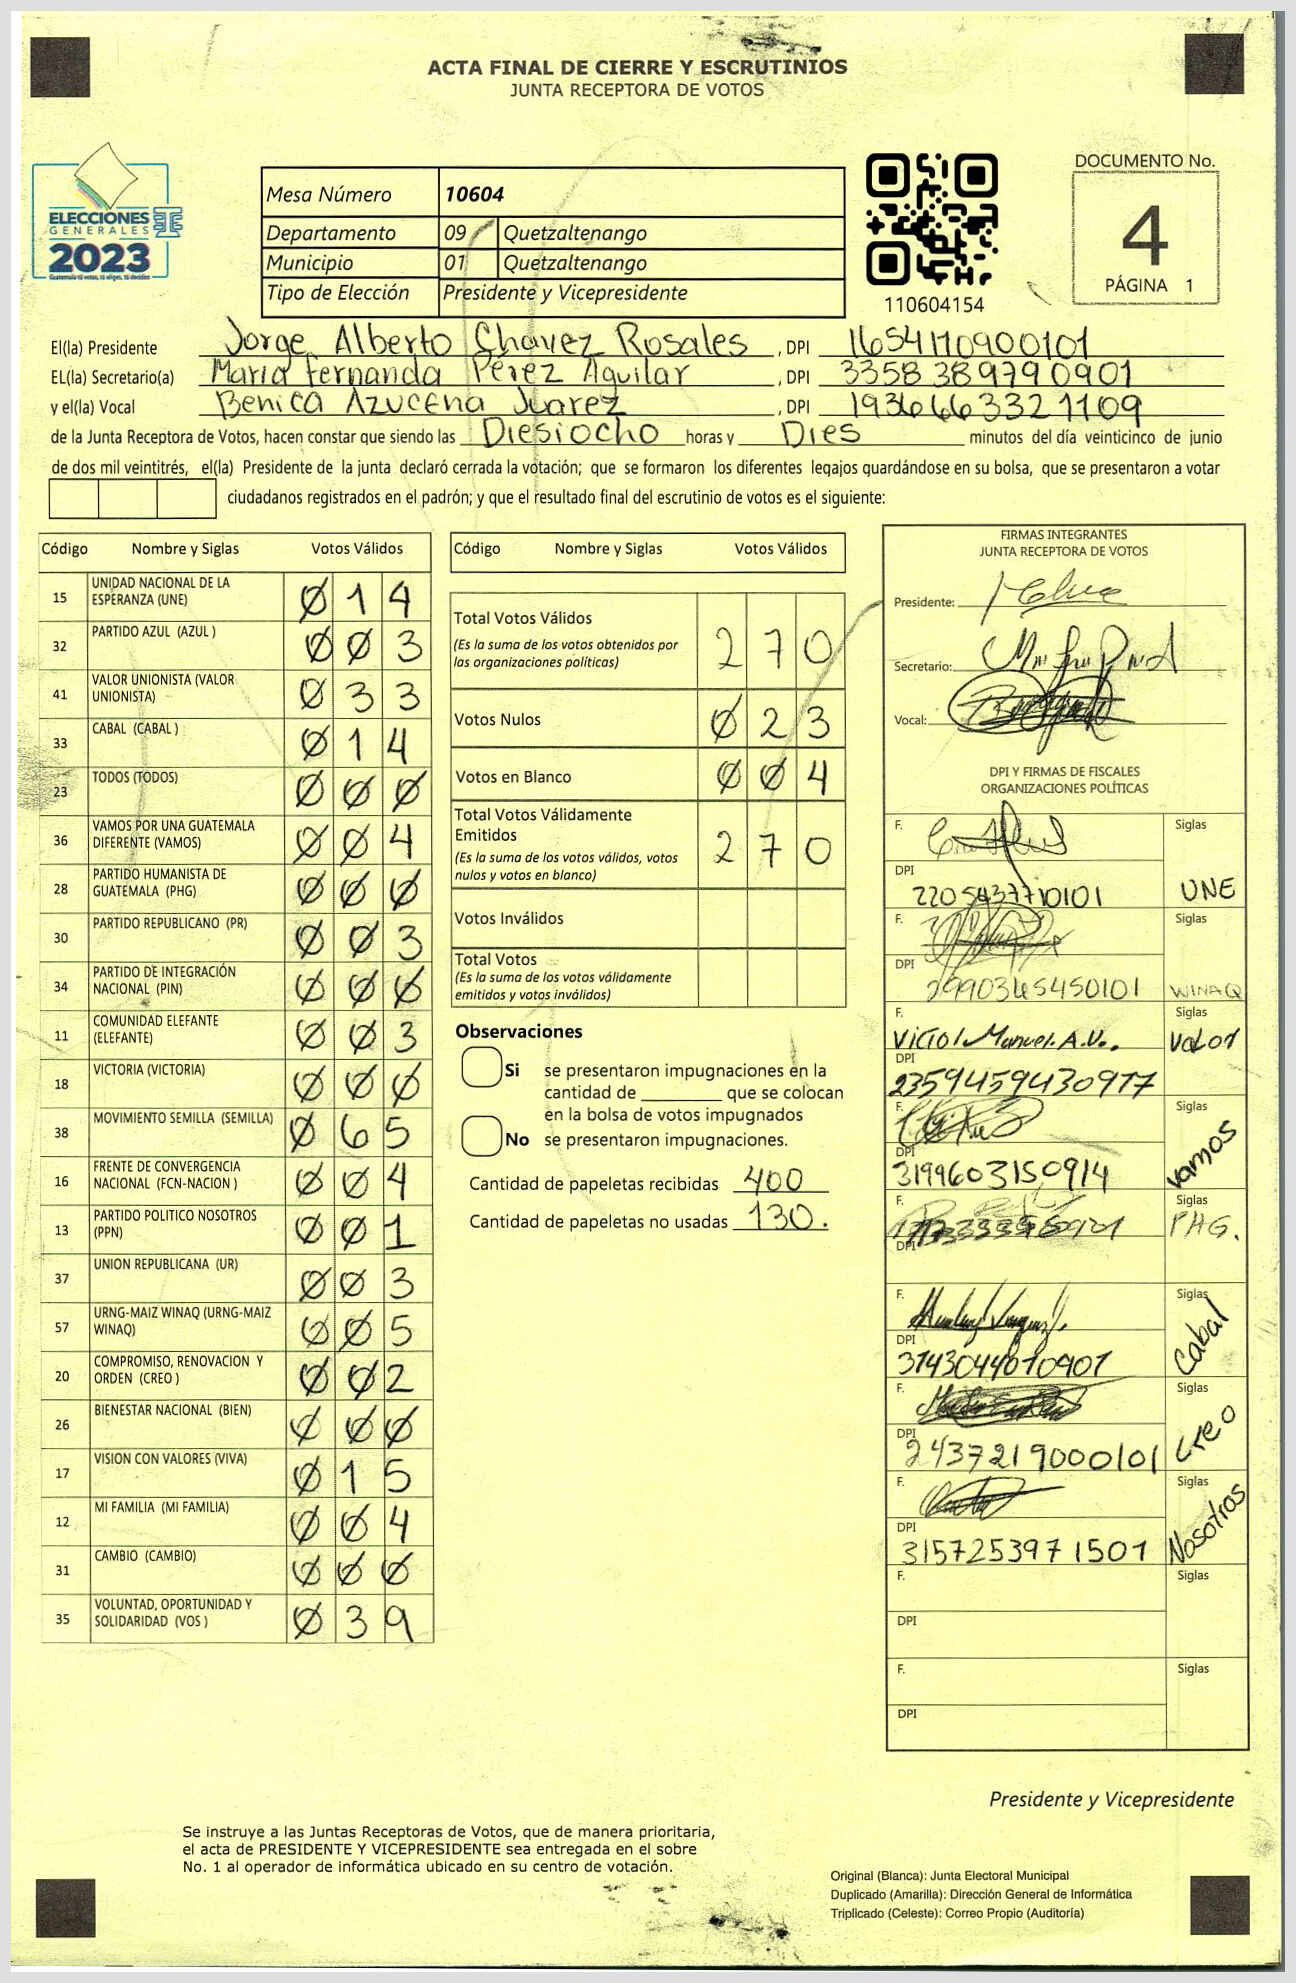 ACTA FINAL DE CIERRE Y ESCRUTINIOS
JUNTA RECEPTORA DE VOTOS
ELECCIONES
GENERALES
2023
Guatemala tú votas, tú eliges, tú decides
Mesa Número 10604
Departamento 09 Quetzaltenango
Municipio 01 Quetzaltenango
Tipo de Elección Presidente y Vicepresidente
110604154
DOCUMENTO No.
4
PÁGINA 1
El(la) Presidente Jorge Alberto Chavez Rosales , DPI 1654170900101
EL(la) Secretario(a) María Fernanda Pérez Aguilar , DPI 3358389790901
y el(la) Vocal Benica Azucena Juarez , DPI 1936663321109
de la Junta Receptora de Votos, hacen constar que siendo las Diesiocho horas y Dies minutos del día veinticinco de junio
de dos mil veintitrés, el(la) Presidente de la junta declaró cerrada la votación; que se formaron los diferentes legajos guardándose en su bolsa, que se presentaron a votar
ciudadanos registrados en el padrón; y que el resultado final del escrutinio de votos es el siguiente:
Código Nombre y Siglas Votos Válidos
15 UNIDAD NACIONAL DE LA ESPERANZA (UNE) 0 1 4
32 PARTIDO AZUL (AZUL ) 0 0 3
41 VALOR UNIONISTA (VALOR UNIONISTA) 0 3 3
33 CABAL (CABAL ) 0 1 4
23 TODOS (TODOS) 0 0 0
36 VAMOS POR UNA GUATEMALA DIFERENTE (VAMOS) 0 0 4
28 PARTIDO HUMANISTA DE GUATEMALA (PHG) 0 0 0
30 PARTIDO REPUBLICANO (PR) 0 0 3
34 PARTIDO DE INTEGRACIÓN NACIONAL (PIN) 0 0 0
11 COMUNIDAD ELEFANTE (ELEFANTE) 0 0 3
18 VICTORIA (VICTORIA) 0 0 0
38 MOVIMIENTO SEMILLA (SEMILLA) 0 6 5
16 FRENTE DE CONVERGENCIA NACIONAL (FCN-NACION ) 0 0 4
13 PARTIDO POLITICO NOSOTROS (PPN) 0 0 1
37 UNION REPUBLICANA (UR) 0 0 3
57 URNG-MAIZ WINAQ (URNG-MAIZ WINAQ) 0 0 5
20 COMPROMISO, RENOVACION Y ORDEN (CREO ) 0 0 2
26 BIENESTAR NACIONAL (BIEN) 0 0 0
17 VISION CON VALORES (VIVA) 0 1 5
12 MI FAMILIA (MI FAMILIA) 0 0 4
31 CAMBIO (CAMBIO) 0 0 0
35 VOLUNTAD, OPORTUNIDAD Y SOLIDARIDAD (VOS ) 0 3 9
Código Nombre y Siglas Votos Válidos
Total Votos Válidos 2 7 0
(Es la suma de los votos obtenidos por
las organizaciones políticas)
Votos Nulos 0 2 3
Votos en Blanco 0 0 4
Total Votos Válidamente
Emitidos 2 7 0
(Es la suma de los votos válidos, votos
nulos y votos en blanco)
Votos Inválidos
Total Votos
(Es la suma de los votos válidamente
emitidos y votos inválidos)
Observaciones
Si se presentaron impugnaciones en la
cantidad de que se colocan
en la bolsa de votos impugnados
No se presentaron impugnaciones.
Cantidad de papeletas recibidas 400
Cantidad de papeletas no usadas 130.
FIRMAS INTEGRANTES
JUNTA RECEPTORA DE VOTOS
Presidente:
Secretario:
Vocal:
DPI Y FIRMAS DE FISCALES
ORGANIZACIONES POLÍTICAS
F. Siglas
DPI
2205437710101 UNE
F. Siglas
DPI
2990365450101 WINAQ
F. Siglas
Victor Manuel A.V. Valor
DPI
2359459430917
F. Siglas
DPI
3199603150914 Vamos
F. Siglas
PHG.
DPI
F. Siglas
DPI
3143044010901 Cabal
F. Siglas
DPI
2437219000101 Creo
F. Siglas
DPI
3157253971501 Nosotros
F. Siglas
DPI
F. Siglas
DPI
Presidente y Vicepresidente
Se instruye a las Juntas Receptoras de Votos, que de manera prioritaria,
el acta de PRESIDENTE Y VICEPRESIDENTE sea entregada en el sobre
No. 1 al operador de informática ubicado en su centro de votación.
Original (Blanca): Junta Electoral Municipal
Duplicado (Amarilla): Dirección General de Informática
Triplicado (Celeste): Correo Propio (Auditoría)